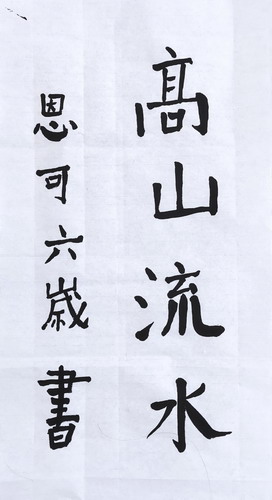 高山流水
恩可六歲書